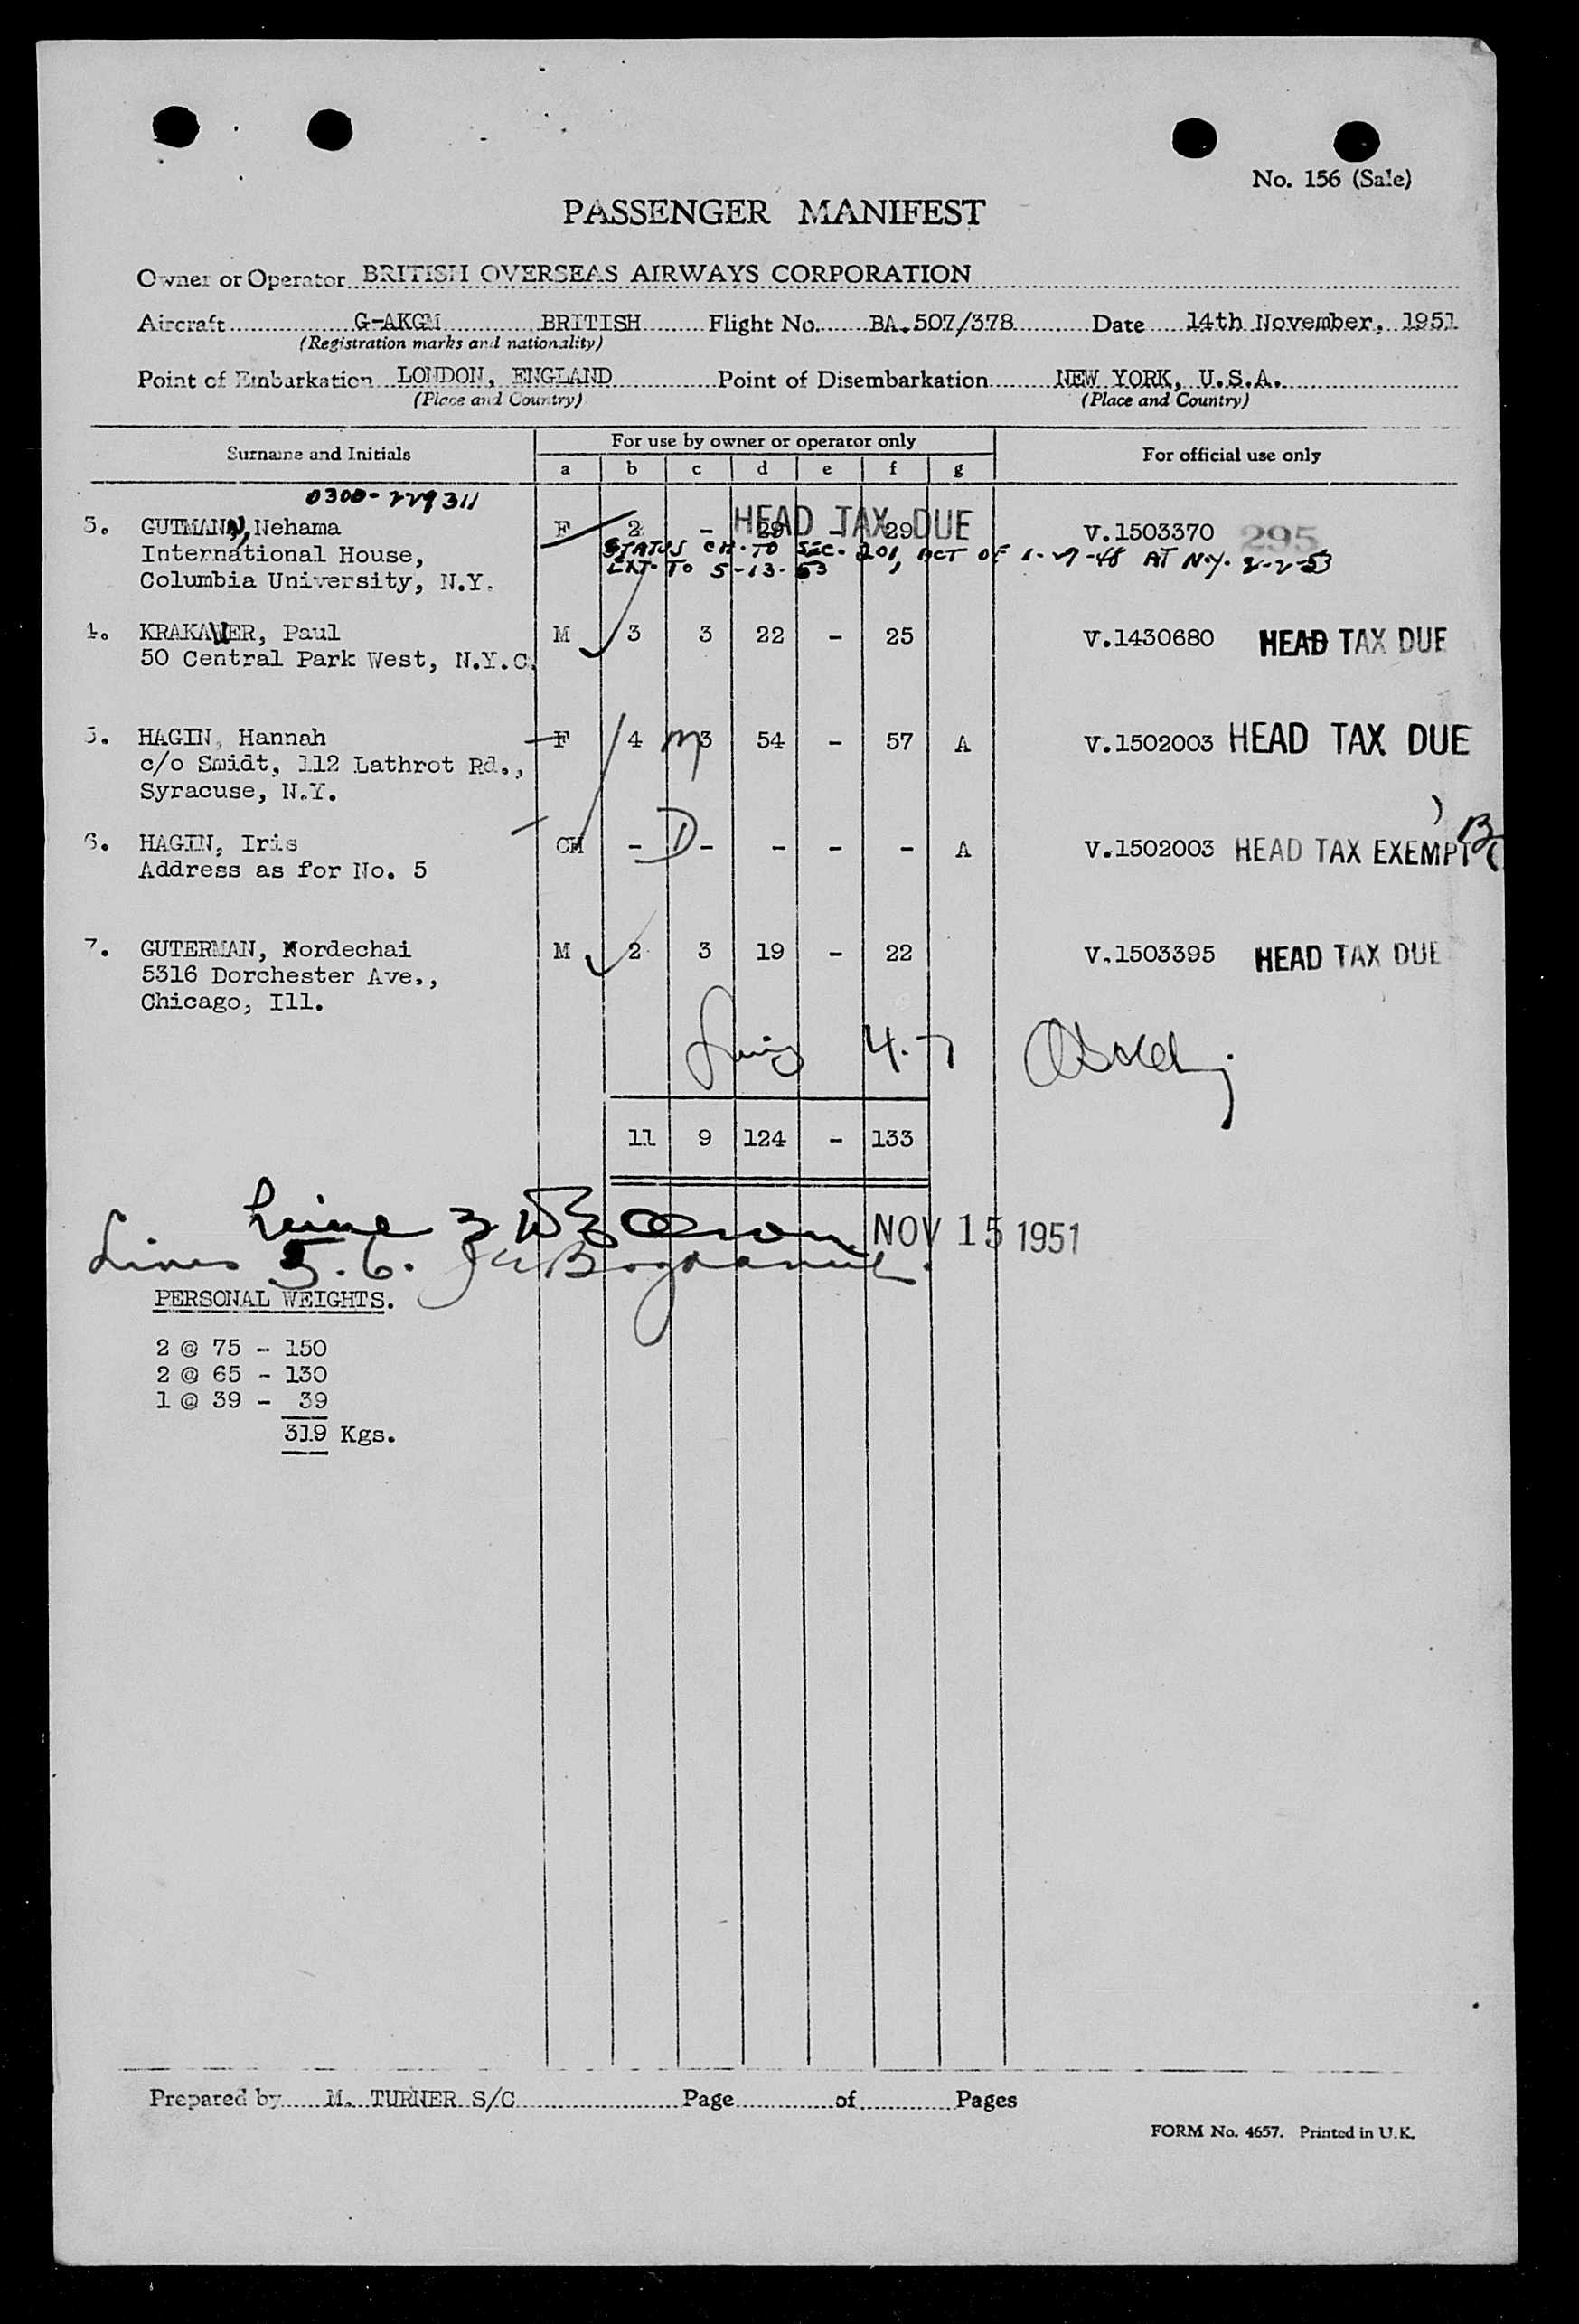 No. 156 (Sale)
PASSENGER MANIFEST
Owner or Operator BRITISH OVERSEAS AIRWAYS CORPORATION
Aircraft G-AKGM BRITISH Flight No. BA.507/378 Date 14th November, 1951
(Registration marks and nationality)
Point of Embarkation LONDON, ENGLAND Point of Disembarkation NEW YORK, U.S.A.
(Place and Country) (Place and Country)
Surname and Initials For use by owner or operator only For official use only
a b c d e f g
0300-229311
3. GUTMANN, Nehama F 2 - 29 - 29 HEAD TAX DUE V.1503370 295
International House, STATUS CH. TO SEC. 201, ACT OF 1-27-48 AT N.Y. 2-2-53
EXT. TO 5-13-53
Columbia University, N.Y.
4. KRAKAUER, Paul M 3 3 22 - 25 V.1430680 HEAD TAX DUE
50 Central Park West, N.Y.C.
5. HAGIN, Hannah F 4 3 54 - 57 A V.1502003 HEAD TAX DUE
c/o Smidt, 112 Lathrot Rd.,
Syracuse, N.Y.
6. HAGIN, Iris CH - D - - - - A V.1502003 HEAD TAX EXEMPT
Address as for No. 5
7. GUTERMAN, Mordechai M 2 3 19 - 22 V.1503395 HEAD TAX DUE
5316 Dorchester Ave.,
Chicago, Ill.
4.7
11 9 124 - 133
Line 3 NOV 15 1951
Lines 5.6.
PERSONAL WEIGHTS.
2 @ 75 - 150
2 @ 65 - 130
1 @ 39 - 39
319 Kgs.
Prepared by M. TURNER S/C Page of Pages
FORM No. 4657. Printed in U.K.